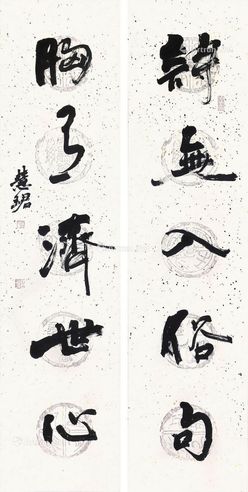 詩無入俗句
胸有濟世心
慧珺